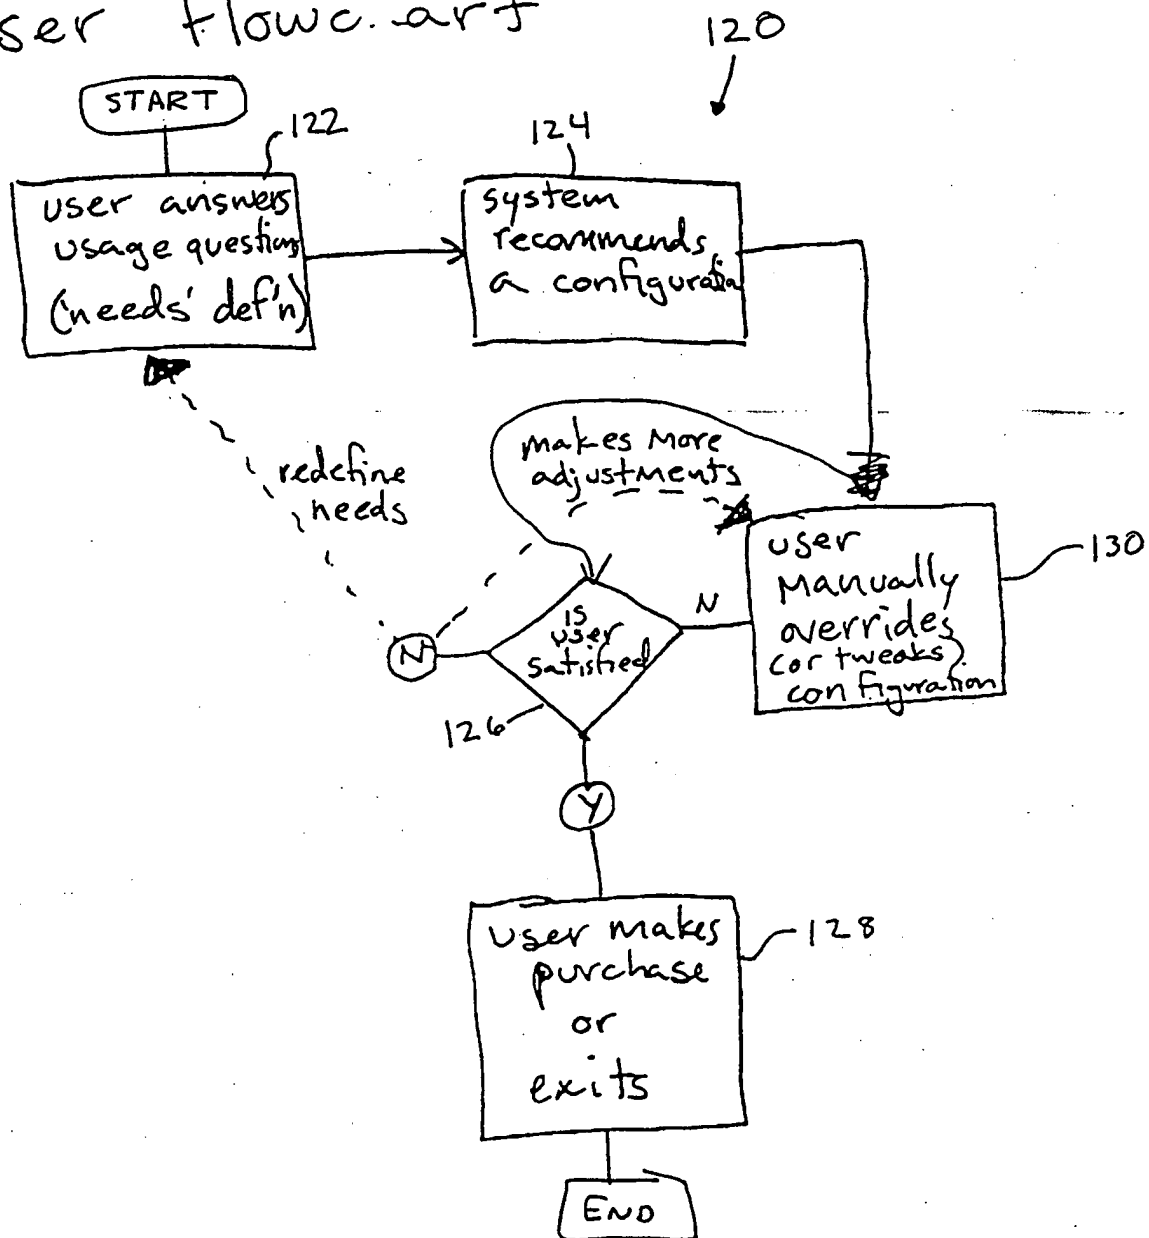 ser flowc.art
120
START
122
user answers
usage questions
('needs' def'n)
124
system
recommends
a configuration
makes more
adjustments
redefine
needs
user
manually
overrides
(or tweaks)
configuration
130
N
is
user
satisfied
N
126
Y
user makes
purchase
or
exits
128
END